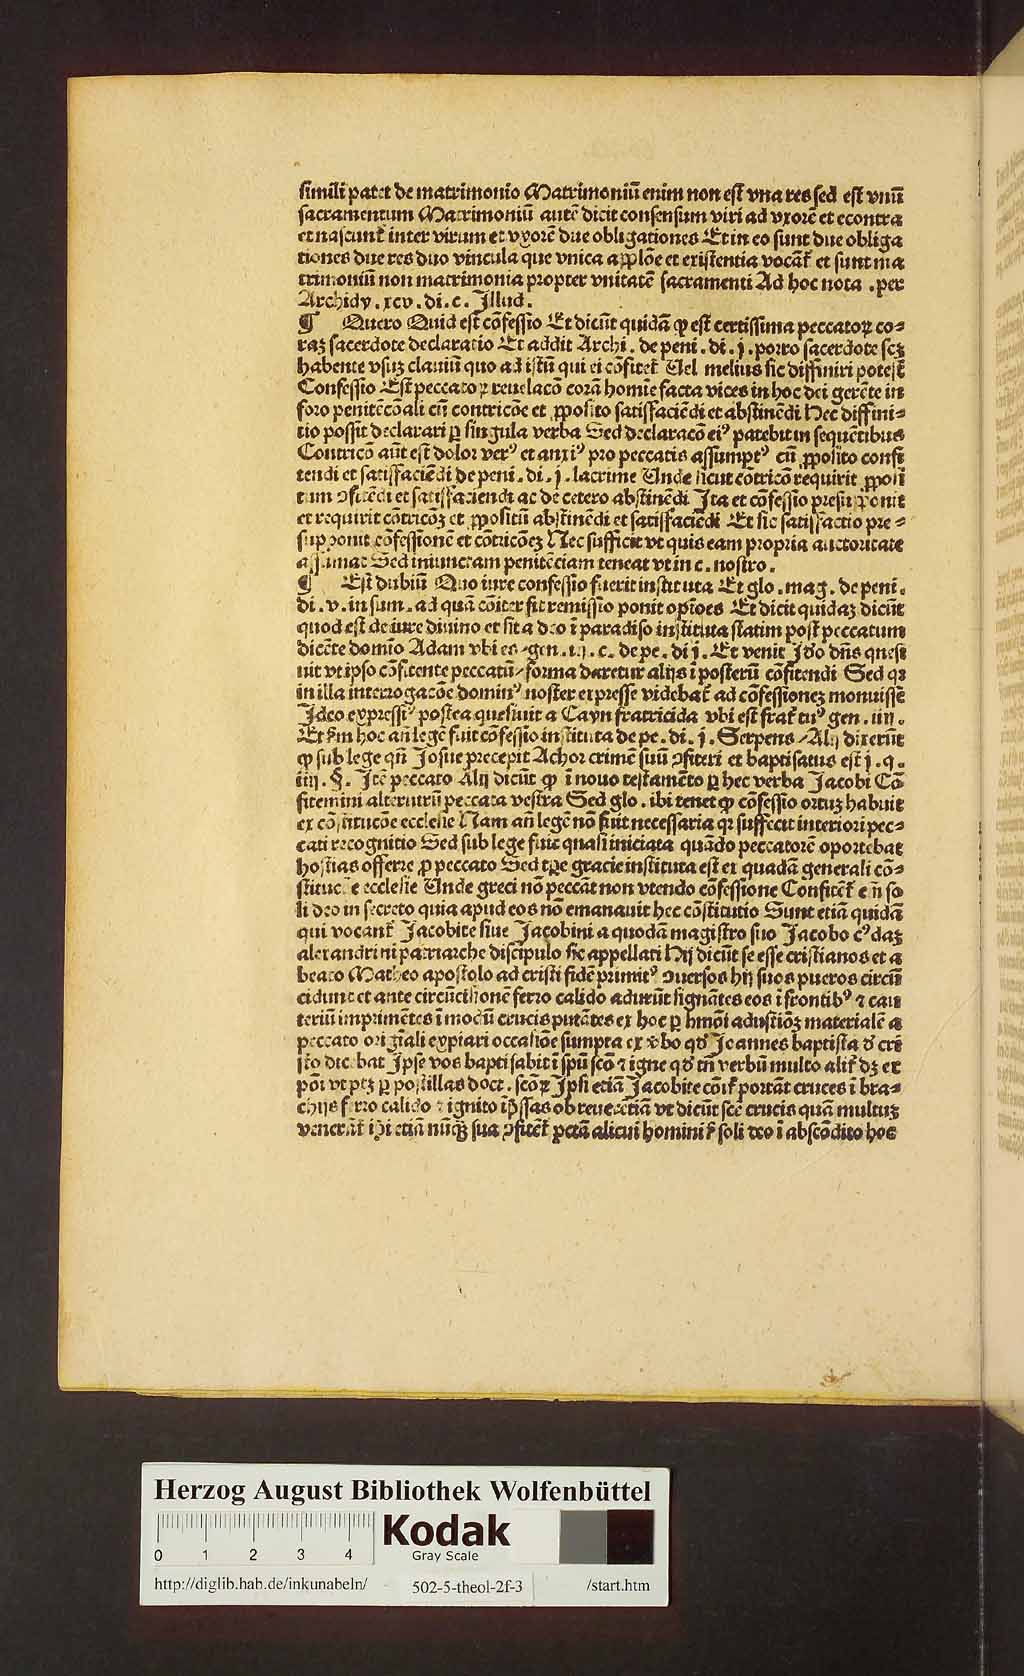 simili patet de matrimonio Matrimoniū enim non est vna res sed est vnū
sacramentum Matrimoniū autē dicit consensum viri ad vxorē et econtra
et nascunt᷑ inter virum et vxorē due obligationes Et in eo sunt due obliga
tiones due res duo vincula que vnica et existentia vocāt᷑ et sunt ma
trimoniū non matrimonia propter vnitatē sacramenti Ad hoc nota .per
Archidy .xcv. di. c. Illud.
¶ Quero Quid est cōfessio Et dicūt quidā ꝙ est certissima peccatoꝝ co⸗
raꝫ sacerdote declaratio Et addit Archi. de peni. di. j. porro sacerdote scꝫ
habente vsuꝫ clauiū quo ad istū qui ei cōfitet᷑ Uel melius sic diffiniri potest
Confessio Est peccatoꝝ reuelacō corā homīe facta vices in hoc dei gerēte in
foro penitēcōali cū contricōe et ꝓposito satisfaciēdi et abstinēdi Hec diffini⸗
tio possit declarari ꝑ singula verba Sed declaracō eiꝰ patebit in sequētibus
Contricō aūt est dolor verꝰ et anxiꝰ pro peccatis assumptꝰ cū ꝓposito confi
tendi et satisfaciēdi de peni. di. j. lacrime Unde sicut cōtricō requirit ꝓposi
tum ꝯfitēdi et satisfaciendi ac de cetero abstinēdi Ita et cōfessio presupponit
et requirit cōtricōꝫ et ꝓpositū abstinēdi et satisfaciēdi Et sic satisfactio pre⸗
supponit cōfessionē et cōtricōeꝫ Nec sufficit vt quis eam propria auctoritate
assumat Sed iniunctam penitēciam teneat vt in c. nostro.
¶ Est dubiū Quo iure confessio fuerit instituta Et glo. mag. de peni.
di. v. in sum. ad quā cōiter fit remissio ponit opīoes Et dicit quidaꝫ dicūt
quod est de iure diuino et sit a deo ī paradiso instituta statim post peccatum
dicēte domīo Adam vbi es gen. iij. c. de pe. di j. Et venit Ido dn̄s quesi
uit vt ipso cōfitente peccatū forma daretur alijs ī posterū cōfitendi Sed qꝛ
in illa interrogacōe dominꝰ noster expresse videbat᷑ ad cōfessioneꝫ monuisse
Ideo expressiꝰ postea quesiuit a Cayn fratricida vbi est frat᷑ tuꝰ gen. iiij.
Et ẜm hoc an̄ legē fuit cōfessio instituta de pe. di. j. Serpens Alij dixerūt
ꝙ sub lege qn̄ Iosue precepit Achor crimē suū ꝯfiteri et baptisatus est j. q.
iiij. §. Itē peccato Alij dicūt ꝙ ī nouo testamēto ꝑ hec verba Iacobi Cō
fitemini alterutrū peccata vestra Sed glo. ibi tenet ꝙ cōfessio ortuꝫ habuit
ex cōstitucōe ecclesie Nam an̄ legē nō fuit necessaria qꝛ suffecit interiori pec⸗
cati recognitio Sed sub lege fuit quasi iniciata quādo peccatorē oportebat
hostias offerre ꝓ peccato Sed tꝑe gracie instituta est ex quadā generali cō⸗
stitucōe ecclesie Unde greci nō peccāt non vtendo cōfessione Confitēt᷑ en̄ so
li deo in secreto quia apud eos nō emanauit hec cōstitutio Sunt etiā quidā
qui vocant᷑ Iacobite siue Iacobini a quodā magistro suo Iacobo cꝰdaꝫ
alexandrini patriarche discipulo sic appellati Hij dicūt se esse cristianos et a
beato Matheo apostolo ad cristi fidē primitꝰ ꝯuersos hij suos pueros circū
cidunt et ante circūcisionē ferro calido adurūt signātes eos ī frontibꝰ ⁊ cau
teriū imprimētes ī modū crucis putātes ex hoc ꝑ hmōi adustiōꝫ materialē a
peccato originali expiari occasiōe sumpta ex ẜbo qd̓ Ioannes baptista d̓ cri
sto dicebat Ipse vos baptisabit ī spū scō ⁊ igne qd̓ tn̄ verbū multo alit᷑ dꝫ ex
pōi vt ptꝫ ꝑ postillas doct. scōꝝ Ipsi etiā Iacobite cōit᷑ portāt cruces ī bra⸗
chijs ferro calido ⁊ ignito īpssas ob reuerētiā vt dicūt scē crucis quā multuꝫ
venerāt᷑ ip̄i etiā nūqꝫ sua ꝯfitēt᷑ pctā alicui homini ẜ soli deo ī abscōdito hos
Herzog August Bibliothek Wolfenbüttel
0 1 2 3 4
Kodak
Gray Scale
http://diglib.hab.de/inkunabeln/ 502-5-theol-2f-3 /start.htm